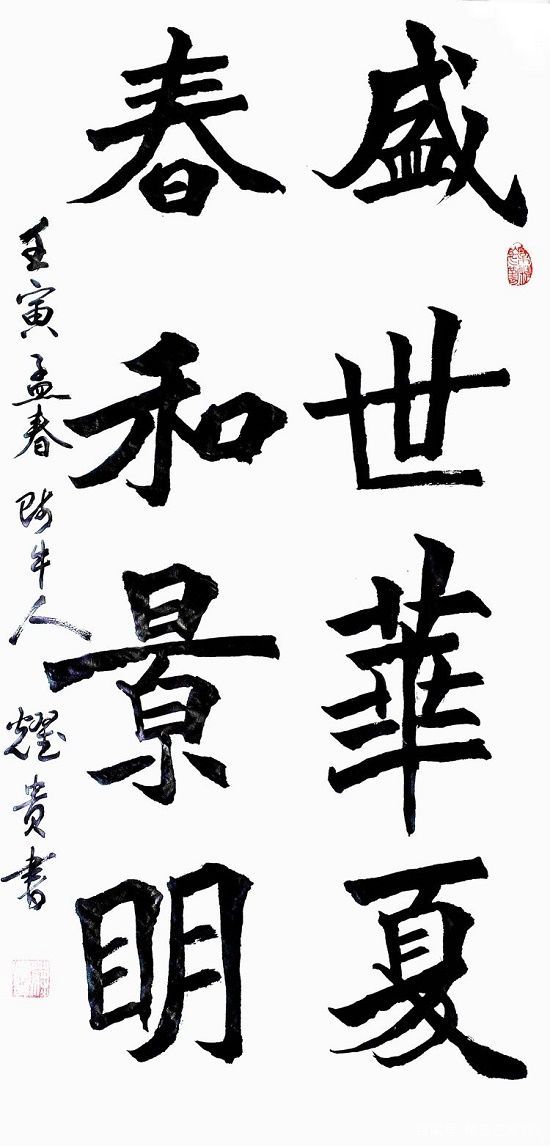 盛世華夏
春和景明
壬寅孟春 牛人 耀贵書